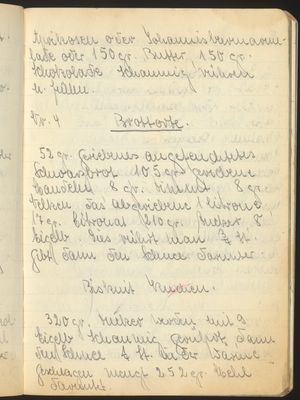 Aprikosen oder Johannisbeermarme-
lade oder 150 gr. Butter 150 gr.
Schokolade schaumig rühren
u. füllen.
Nr. 4
Brottorte.
52 gr. geriebenes
Schwarzbrot 105 gr. geriebene
Mandeln 8 gr. Zimmt 8 gr.
Nelken das abgeriebene 1 Citrone
17 gr. Citronat 210 gr. Zucker 8
Eigelb. Das rührt man ¾ St.
gibt dann den Schnee darunter.
Biskuit
320 gr. Zucker werden mit 9
Eigelb schaumig gerührt, dann
den Schnee ½ St. in der Wanne
geschlagen 252 gr. Mehl
darunter.